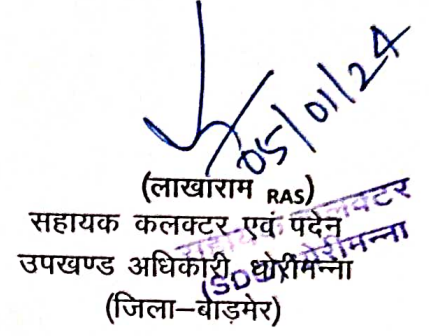 05/01/24
(लाखाराम RAS)
सहायक कलक्टर एवं पदेन
उपखण्ड अधिकारी, धोरीमन्ना
(जिला-बाड़मेर)
सहायक कलक्टर
(SDO) धोरीमन्ना